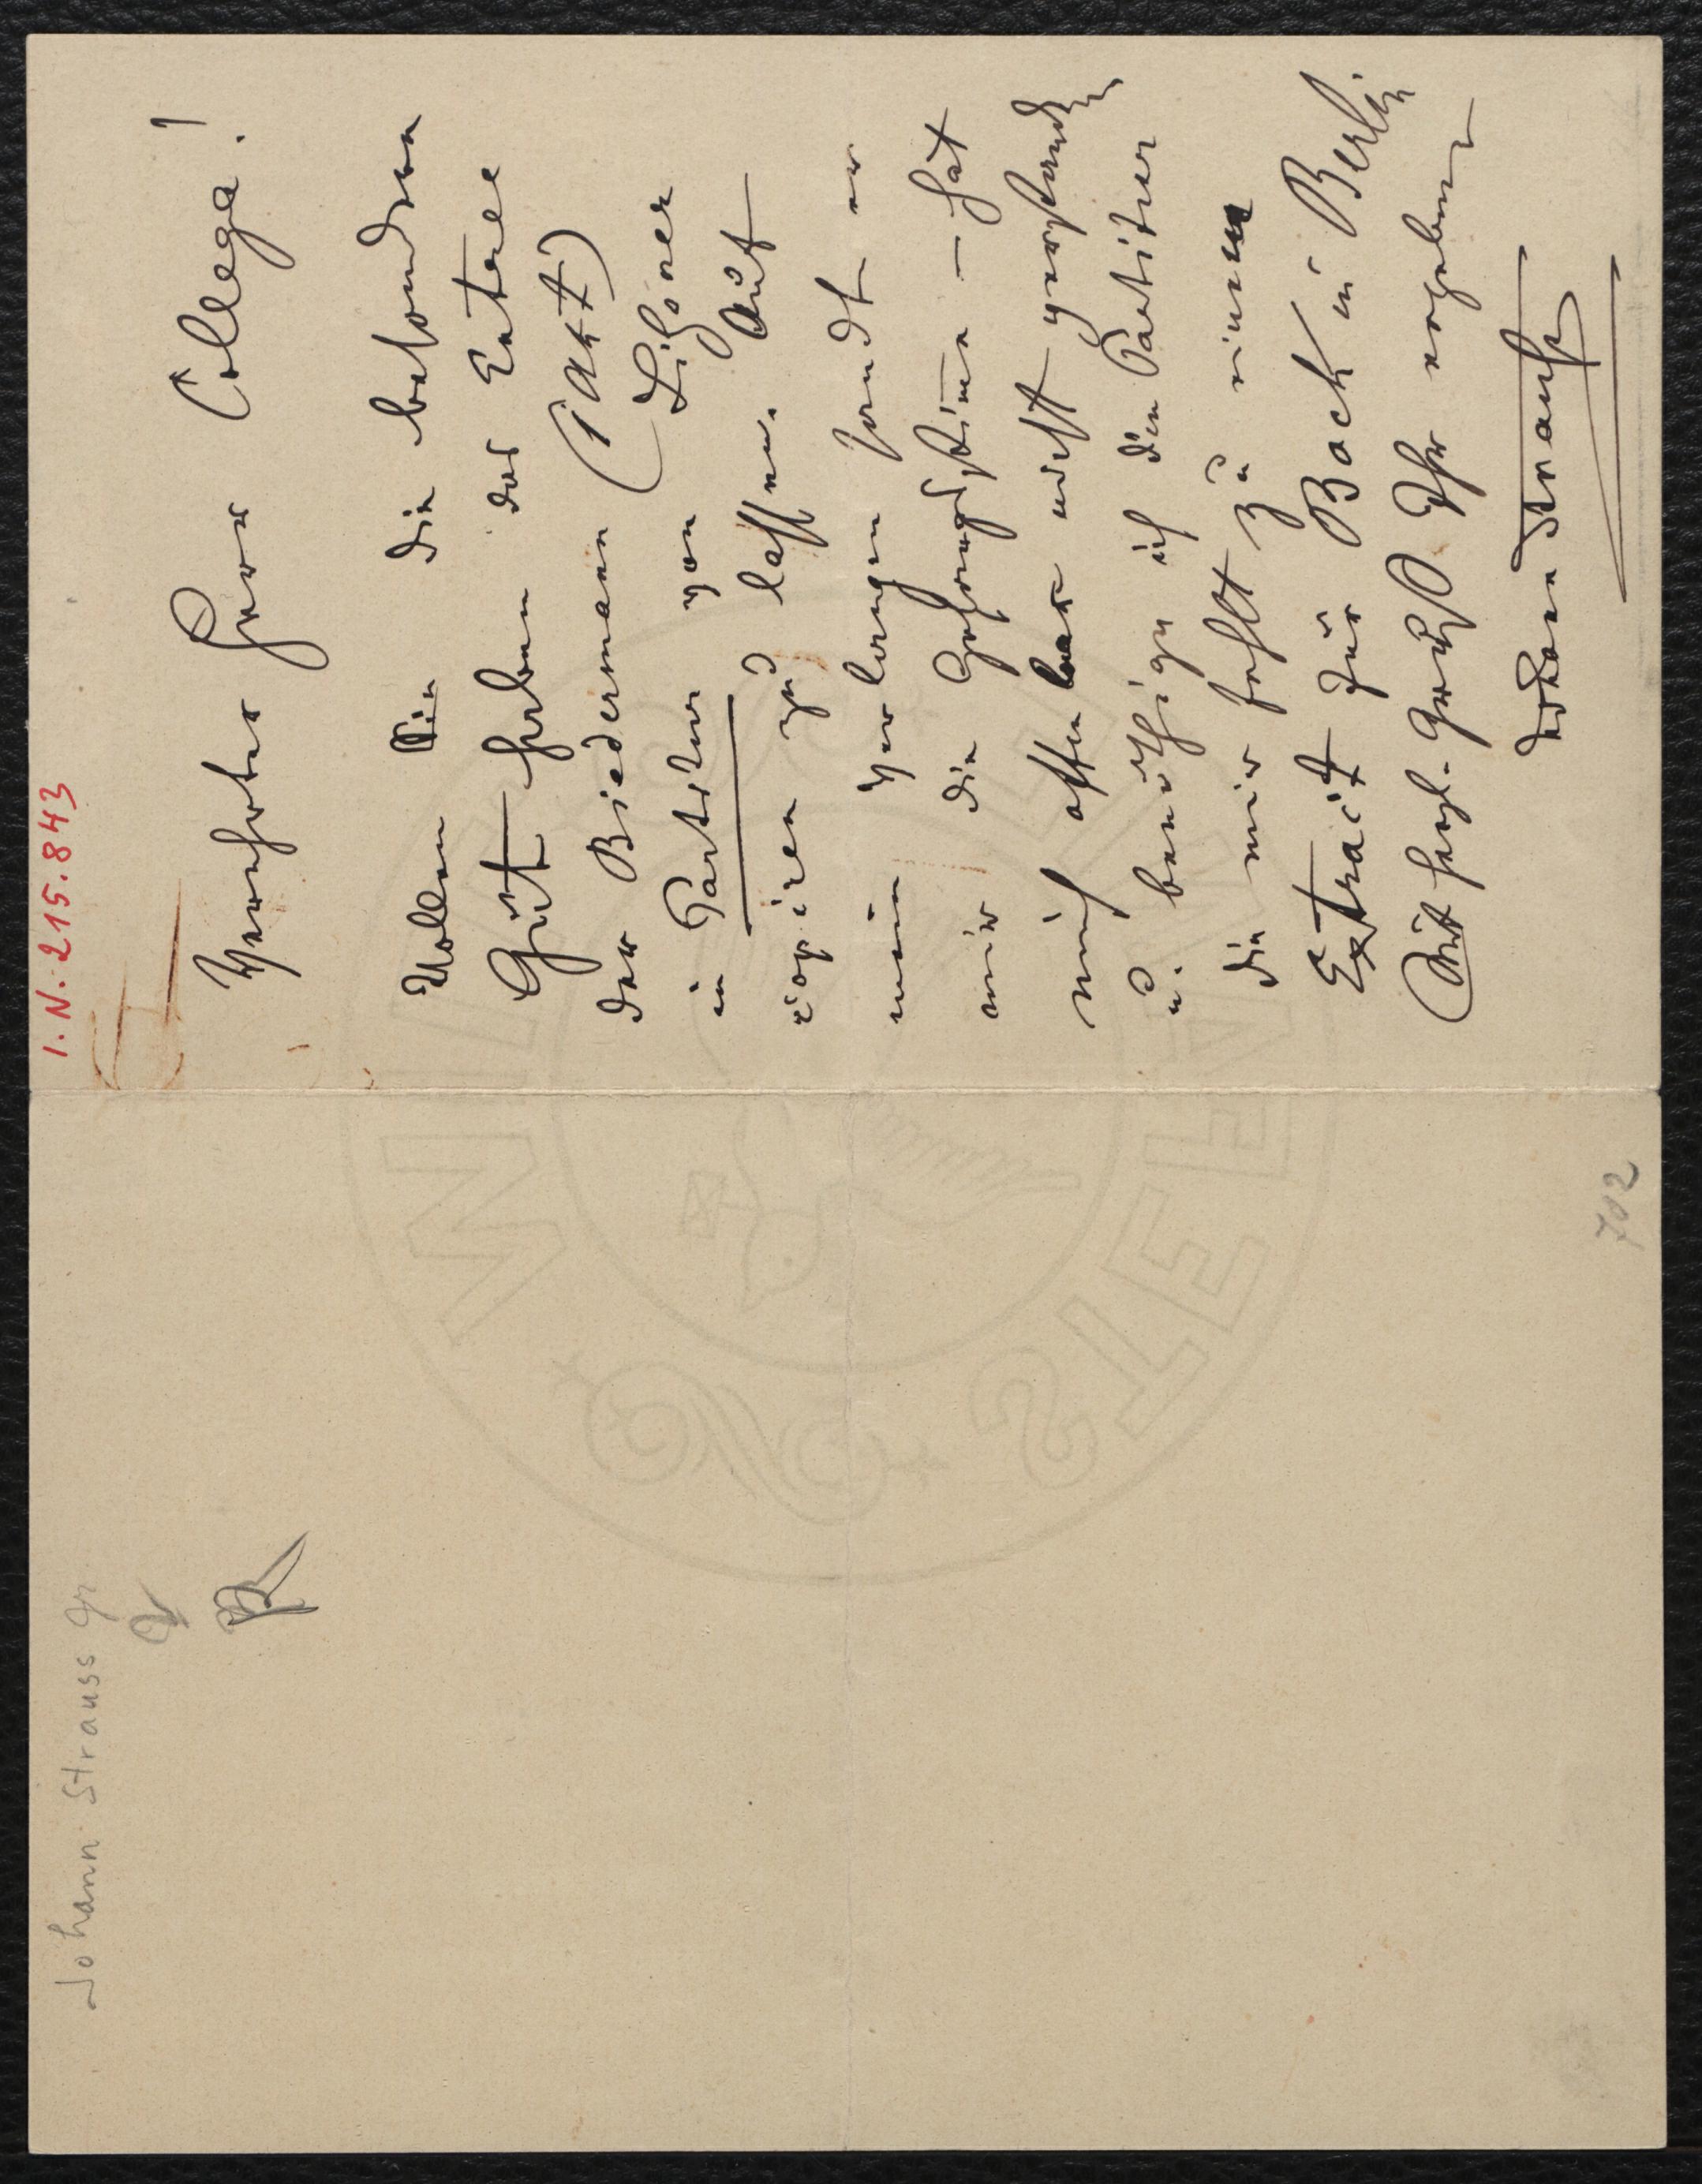 I.N. 215.843
Verehrter Herr College!
Wollen Sie die besondere
Güte haben das Entree
der Biedermann (1 Akt)
in Partitur von Lehner
copiren zu lassen. Auf
mein Verlangen sendet er
mir die Gesangsstimme – hat
mich offenbar nicht verstanden
u. benöthige ich die Partitur
die mir fehlt zu einem
Extract für Bock in Berlin
Mit herzl. Gruß Ihr ergebener
Johann Strauss
Johann Strauss
702
MILL
STEFE